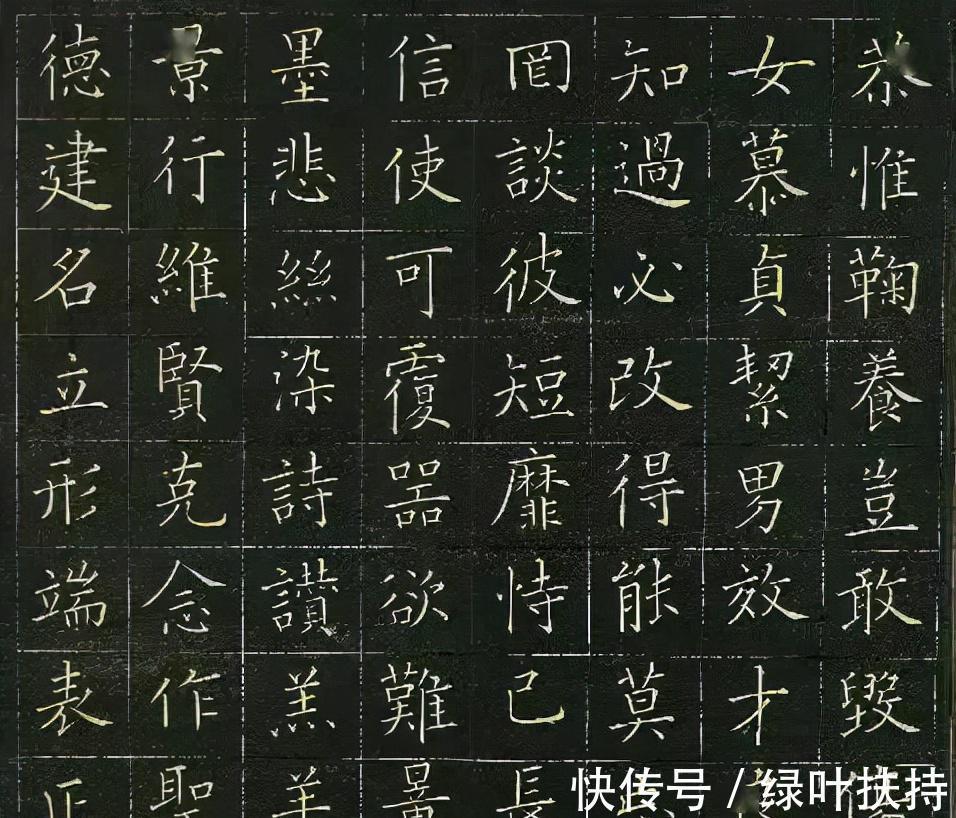 恭惟鞠養豈敢毀
女慕貞絜男效才
知過必改得能莫
罔談彼短靡恃己長
信使可覆器欲難量
墨悲絲染詩讚羔羊
景行維賢克念作聖
德建名立形端表正
快传号/绿叶扶持